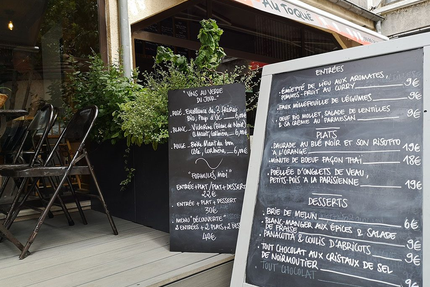 AU TOQUE
"VINS AU VERRE
DU JOUR"
6,00€
6,00€
6,00€
"FORMULES, MIDI"
ENTRÉE + PLAT / PLAT + DESSERT
22€
ENTRÉE + PLAT + DESSERT
30€
MENU "DÉCOUVERTE"
2 ENTRÉES + 2 PLATS + 2
ENTRÉES
- ÉMIETTÉ DE LIEU AUX AROMATES,
POMMES-FRUIT AU CURRY 9€
- FAUX MILLEFEUILLE DE LÉGUMES 9€
- OEUF BIO MOLLET, SALADE DE LENTILLES
& SA CRÈME AU PARMESAN 9€
PLATS
- DAURADE AU BLÉ NOIR ET SON RISOTTO
À L'ORANGE 19€
- MINUTE DE BOEUF FAÇON THAÏ 18€
- POÊLÉE D'ONGLETS DE VEAU,
PETITS-POIS À LA PARISIENNE 19€
DESSERTS
- BRIE DE MELUN 6€
- BLANC-MANGER AUX ÉPICES & SALADE
DE FRAISE 9€
- PANACOTTA & COULIS D'ABRICOTS 9€
- TOUT CHOCOLAT AUX CRISTAUX DE SEL
DE NOIRMOUTIER 9€
TOUT CHOCOLAT